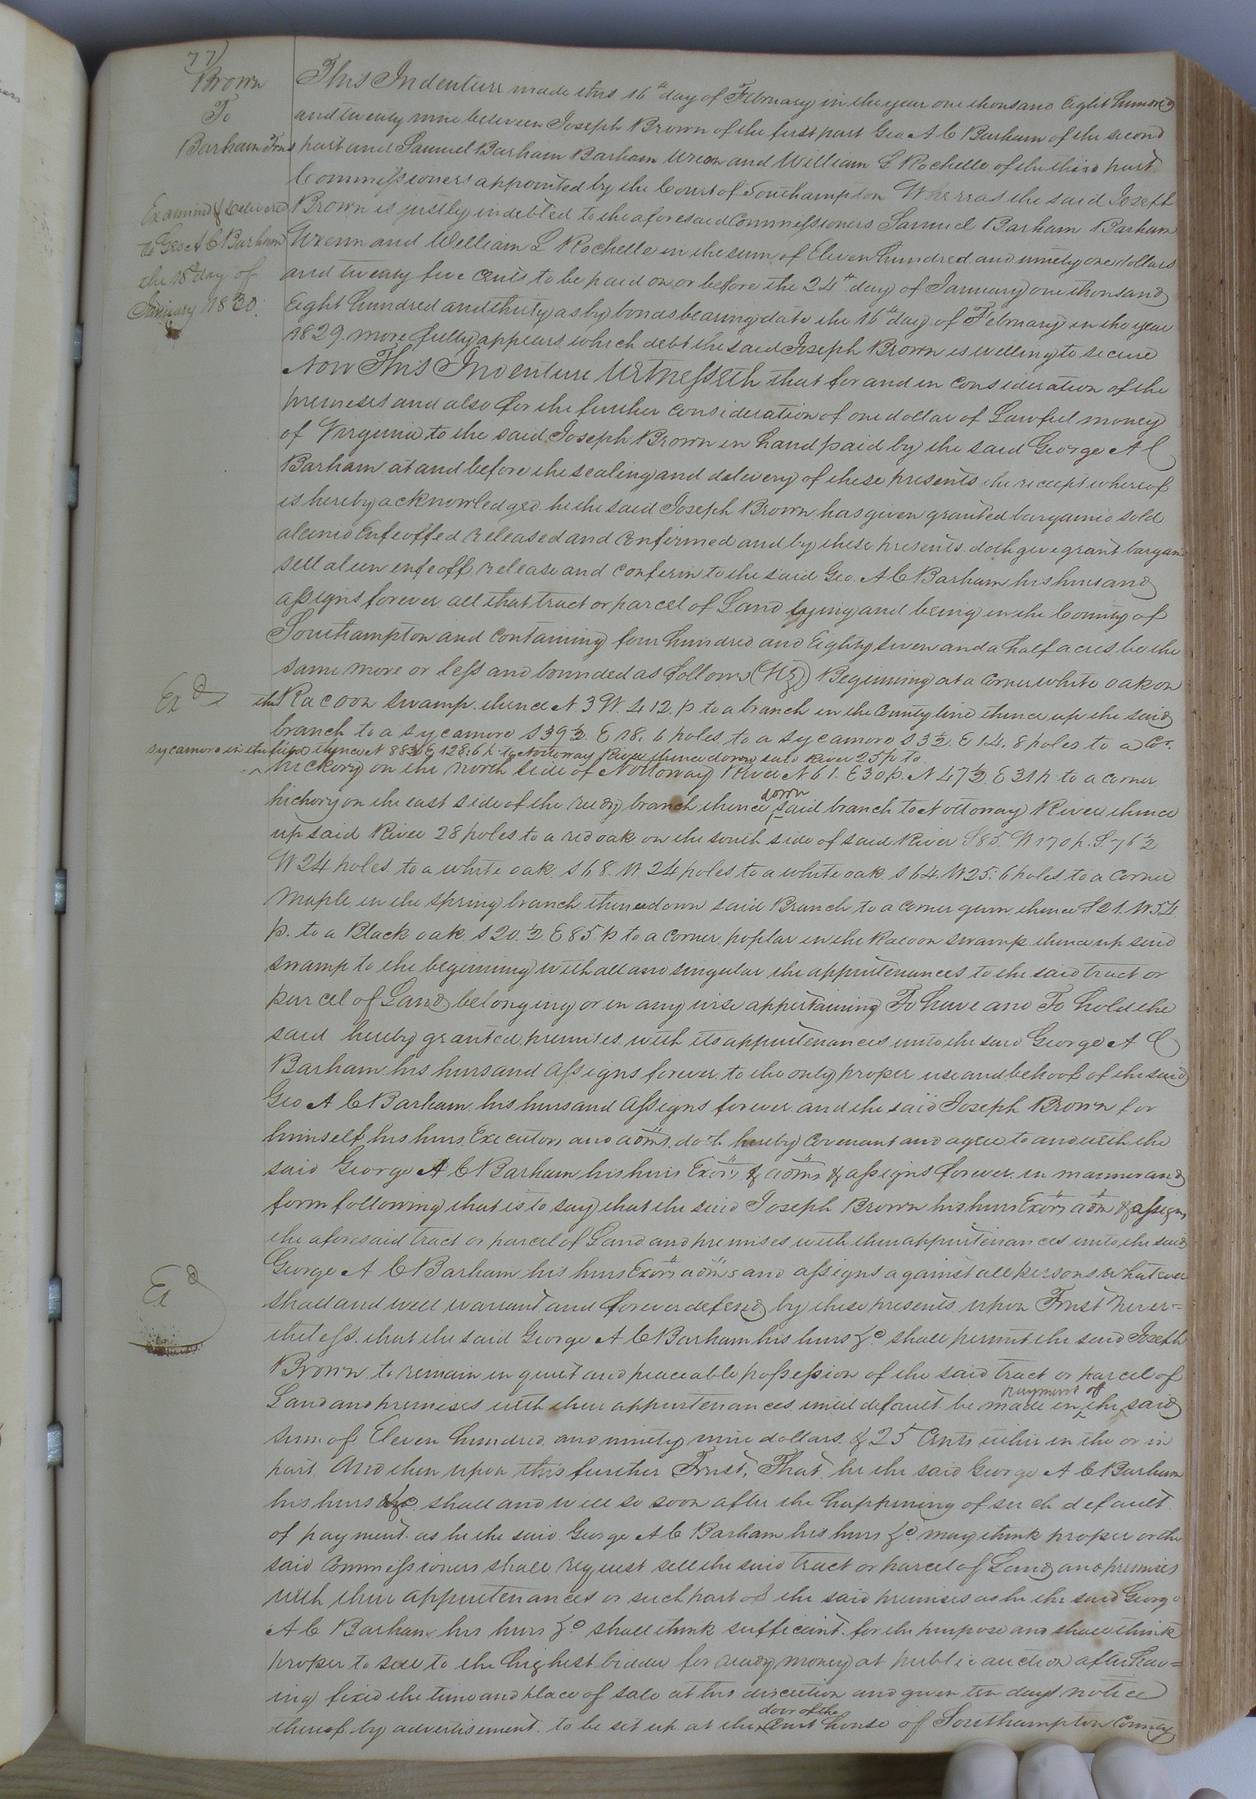 77)
Brown
To
Barham & ors
Examined & delivered
to Geo A C Barham
the 18th day of
January 1830.
This Indenture made this 16th day of February in the year one thousand Eight hundred
and twenty nine between Joseph Brown of the first part Geo A C Barham of the second
part and Samuel Barham Barham Wrenn and William L Rochelle of the third part
Commissioners appointed by the Court of Southampton Wherras the said Joseph
Brown is justly indebted to the aforesaid Commissioners Samuel Barham Barham
Wrenn and William L Rochelle in the sum of Eleven hundred and ninety one dollars
and twenty five cents to be paid on or before the 24th day of January one thousand
Eight hundred and thirty as by bonds bearing date the 16th day of February in the year
1829 more fully appears which debt the said Joseph Brown is willing to secure
Now This Indenture Witnesseth that for and in consideration of the
premises and also for the further consideration of one dollar of Lawful money
of Virginia to the said Joseph Brown in hand paid by the said George A C
Barham at and before the sealing and delivery of these presents the receipt whereof
is hereby acknowledged he the said Joseph Brown has given granted bargained sold
aliened Enfeoffed released and confirmed and by these presents doth give grant bargain
sell alien enfeoff release and confirm to the said Geo. A C Barham his heirs and
assigns forever all that tract or parcel of Land lying and being in the County of
Southampton and containing four hundred and Eighty seven and a half acres be the
same more or less and bounded as follows (Viz) Beginning at a corner white oak on
Exd the Racoon swamp thence N 3 W 412 p to a branch in the County line thence up the said
branch to a sycamore S 39½ E 18.6 poles to a sycamore S 3½ E 14.8 poles to a Cor.
sycamore in the field thence N 88½ E 128.6 p to Nottoway River thence down said River 25 p to
hickory on the north side of Nottoway River N 61 E 30 p. N 47½ E 31 p to a corner
hickory on the east side of the reedy branch thence down said branch to Nottoway River thence
up said River 28 poles to a red oak on the south side of said River S 85 W 170 p. S 76½
W 24 poles to a white oak S 68 W 24 poles to a white oak S 64 W 25.6 poles to a corner
Maple in the spring branch thence down said Branch to a corner gum thence S 21 W 54
p. to a Black oak S 20½ E 85 p to a corner poplar in the Racoon swamp thence up said
swamp to the beginning with all and singular the appurtenances to the said tract or
parcel of Land belonging or in any wise appertaining To have and To hold the
said hereby granted premises with its appurtenances unto the said George A C
Barham his heirs and assigns forever to the only proper use and behoof of the said
Geo A C Barham his heirs and assigns forever and the said Joseph Brown for
himself his heirs Executors and adms. doth hereby covenant and agree to and with the
said George A C Barham his heirs Exors & adms & assigns forever in manner and
form following that is to say that the said Joseph Brown his heirs Exors adm & assigns
the aforesaid tract or parcel of Land and premises with their appurtenances unto the said
George A C Barham his heirs Exors adms and assigns against all persons whatever
Exd
shall and will warrant and forever defend by these presents upon Trust never=
theless that the said George A C Barham his heirs &c shall permit the said Joseph
Brown to remain in quiet and peaceable possession of the said tract or parcel of
Land and premises with their appurtenances until default be made in payment of the said
sum of Eleven hundred and ninety nine dollars & 25 Cents either in the or in
part And then upon this further Trust, That he the said George A C Barham
his heirs &c shall and will so soon after the happening of such default
of payment as he the said George A C Barham his heirs &c may think proper or the
said Commissioners shall request sell the said tract or parcel of Land and premises
with their appurtenances or such part of the said premises as he the said George
A C Barham his heirs &c shall think sufficient for the purpose and shall think
proper to sell to the highest bidder for ready money at public auction after hav=
ing fixed the time and place of sale at his discretion and given ten days notice
thereof by advertisement to be set up at the door of the Court house of Southampton County